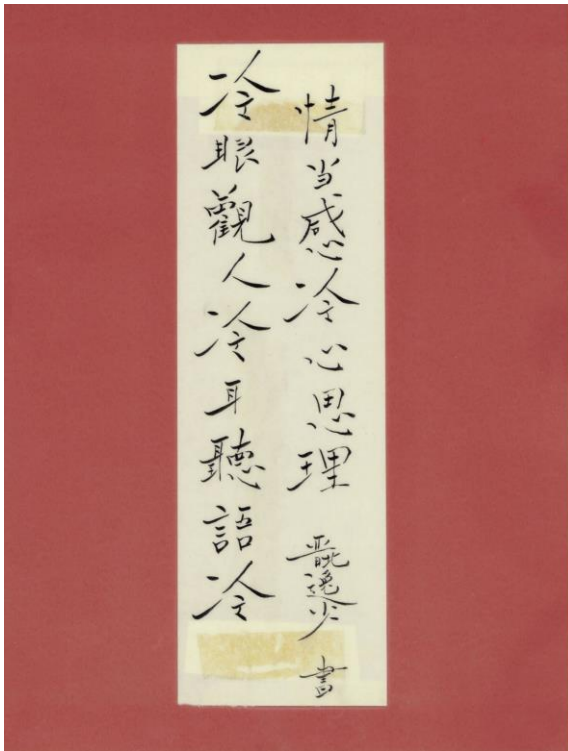 冷眼觀人冷耳聽語冷
情当感冷心思理
書